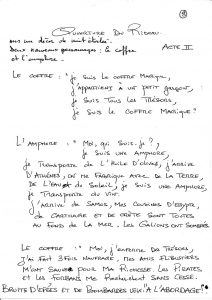 OUVERTURE DU RIDEAU
sur un décor de nuit étoilée.
Deux nouveaux personnages : le coffre
et l'amphore.
ACTE II
LE COFFRE : "JE SUIS LE COFFRE MAGIQUE,
J'APPARTIENS A UN PETIT GARÇON,
JE SUIS TOUS LES TRÉSORS,
JE SUIS LE COFFRE MAGIQUE"
L'AMPHORE : "MOI, QUI SUIS-JE ?,
JE SUIS UNE AMPHORE,
JE TRANSPORTE DE L'HUILE D'OLIVES, J'ARRIVE
D'ATHÈNES, ON ME FABRIQUE AVEC DE LA TERRE,
DE L'EAU ET DU SOLEIL, JE SUIS UNE AMPHORE,
JE TRANSPORTE DU VIN.
J'ARRIVE DE SAMOS, MES COUSINES D'EGYPTE,
DE CARTHAGE ET DE CRÈTE SONT TOUTES
AU FOND DE LA MER. LES GALIONS ONT SOMBRÉS
LE COFFRE : "MOI, J'ENFERME DES TRÉSORS,
J'AI FAIT 3 FOIS NAUFRAGE, MES AMIS FLIBUSTIERS
M'ONT SAUVÉ POUR MA RICHESSE. LES PIRATES
ET LES FORBANS ME POURCHASSENT SANS CESSE
BRUITS D'ÉPÉES ET DE BOMBARDES A L'ABORDAGE"